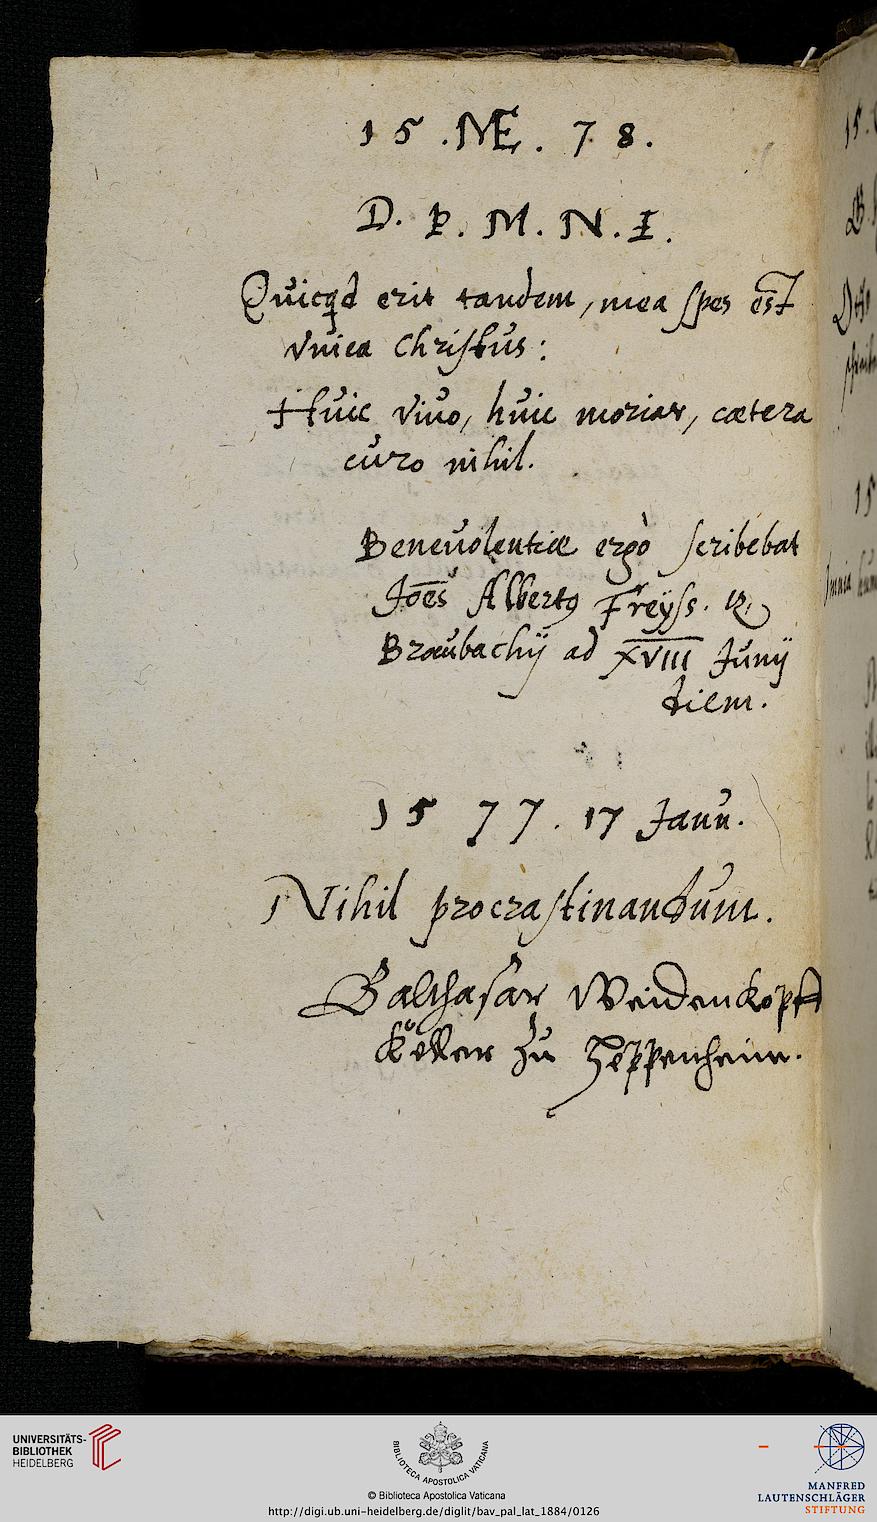 15 . ME . 78 .
D. P. M. N. I.
Quicqd erit tandem, mea spes est
vnica Christus :
Huic viuo, huic moriar, cætera
curo nihil.
Beneuolentiæ ergò scribebat
Joes Albert9 Freÿss.
Braubachij ad XVIII Junij
diem.
1577 . 17 Janu.
Nihil procrastinandum.
Balthasar Weidenkopff
Keller zu
UNIVERSITÄTS-
BIBLIOTHEK
HEIDELBERG
BIBLIOTECA APOSTOLICA VATICANA
© Biblioteca Apostolica Vaticana
http://digi.ub.uni-heidelberg.de/diglit/bav_pal_lat_1884/0126
MANFRED
LAUTENSCHLÄGER
STIFTUNG